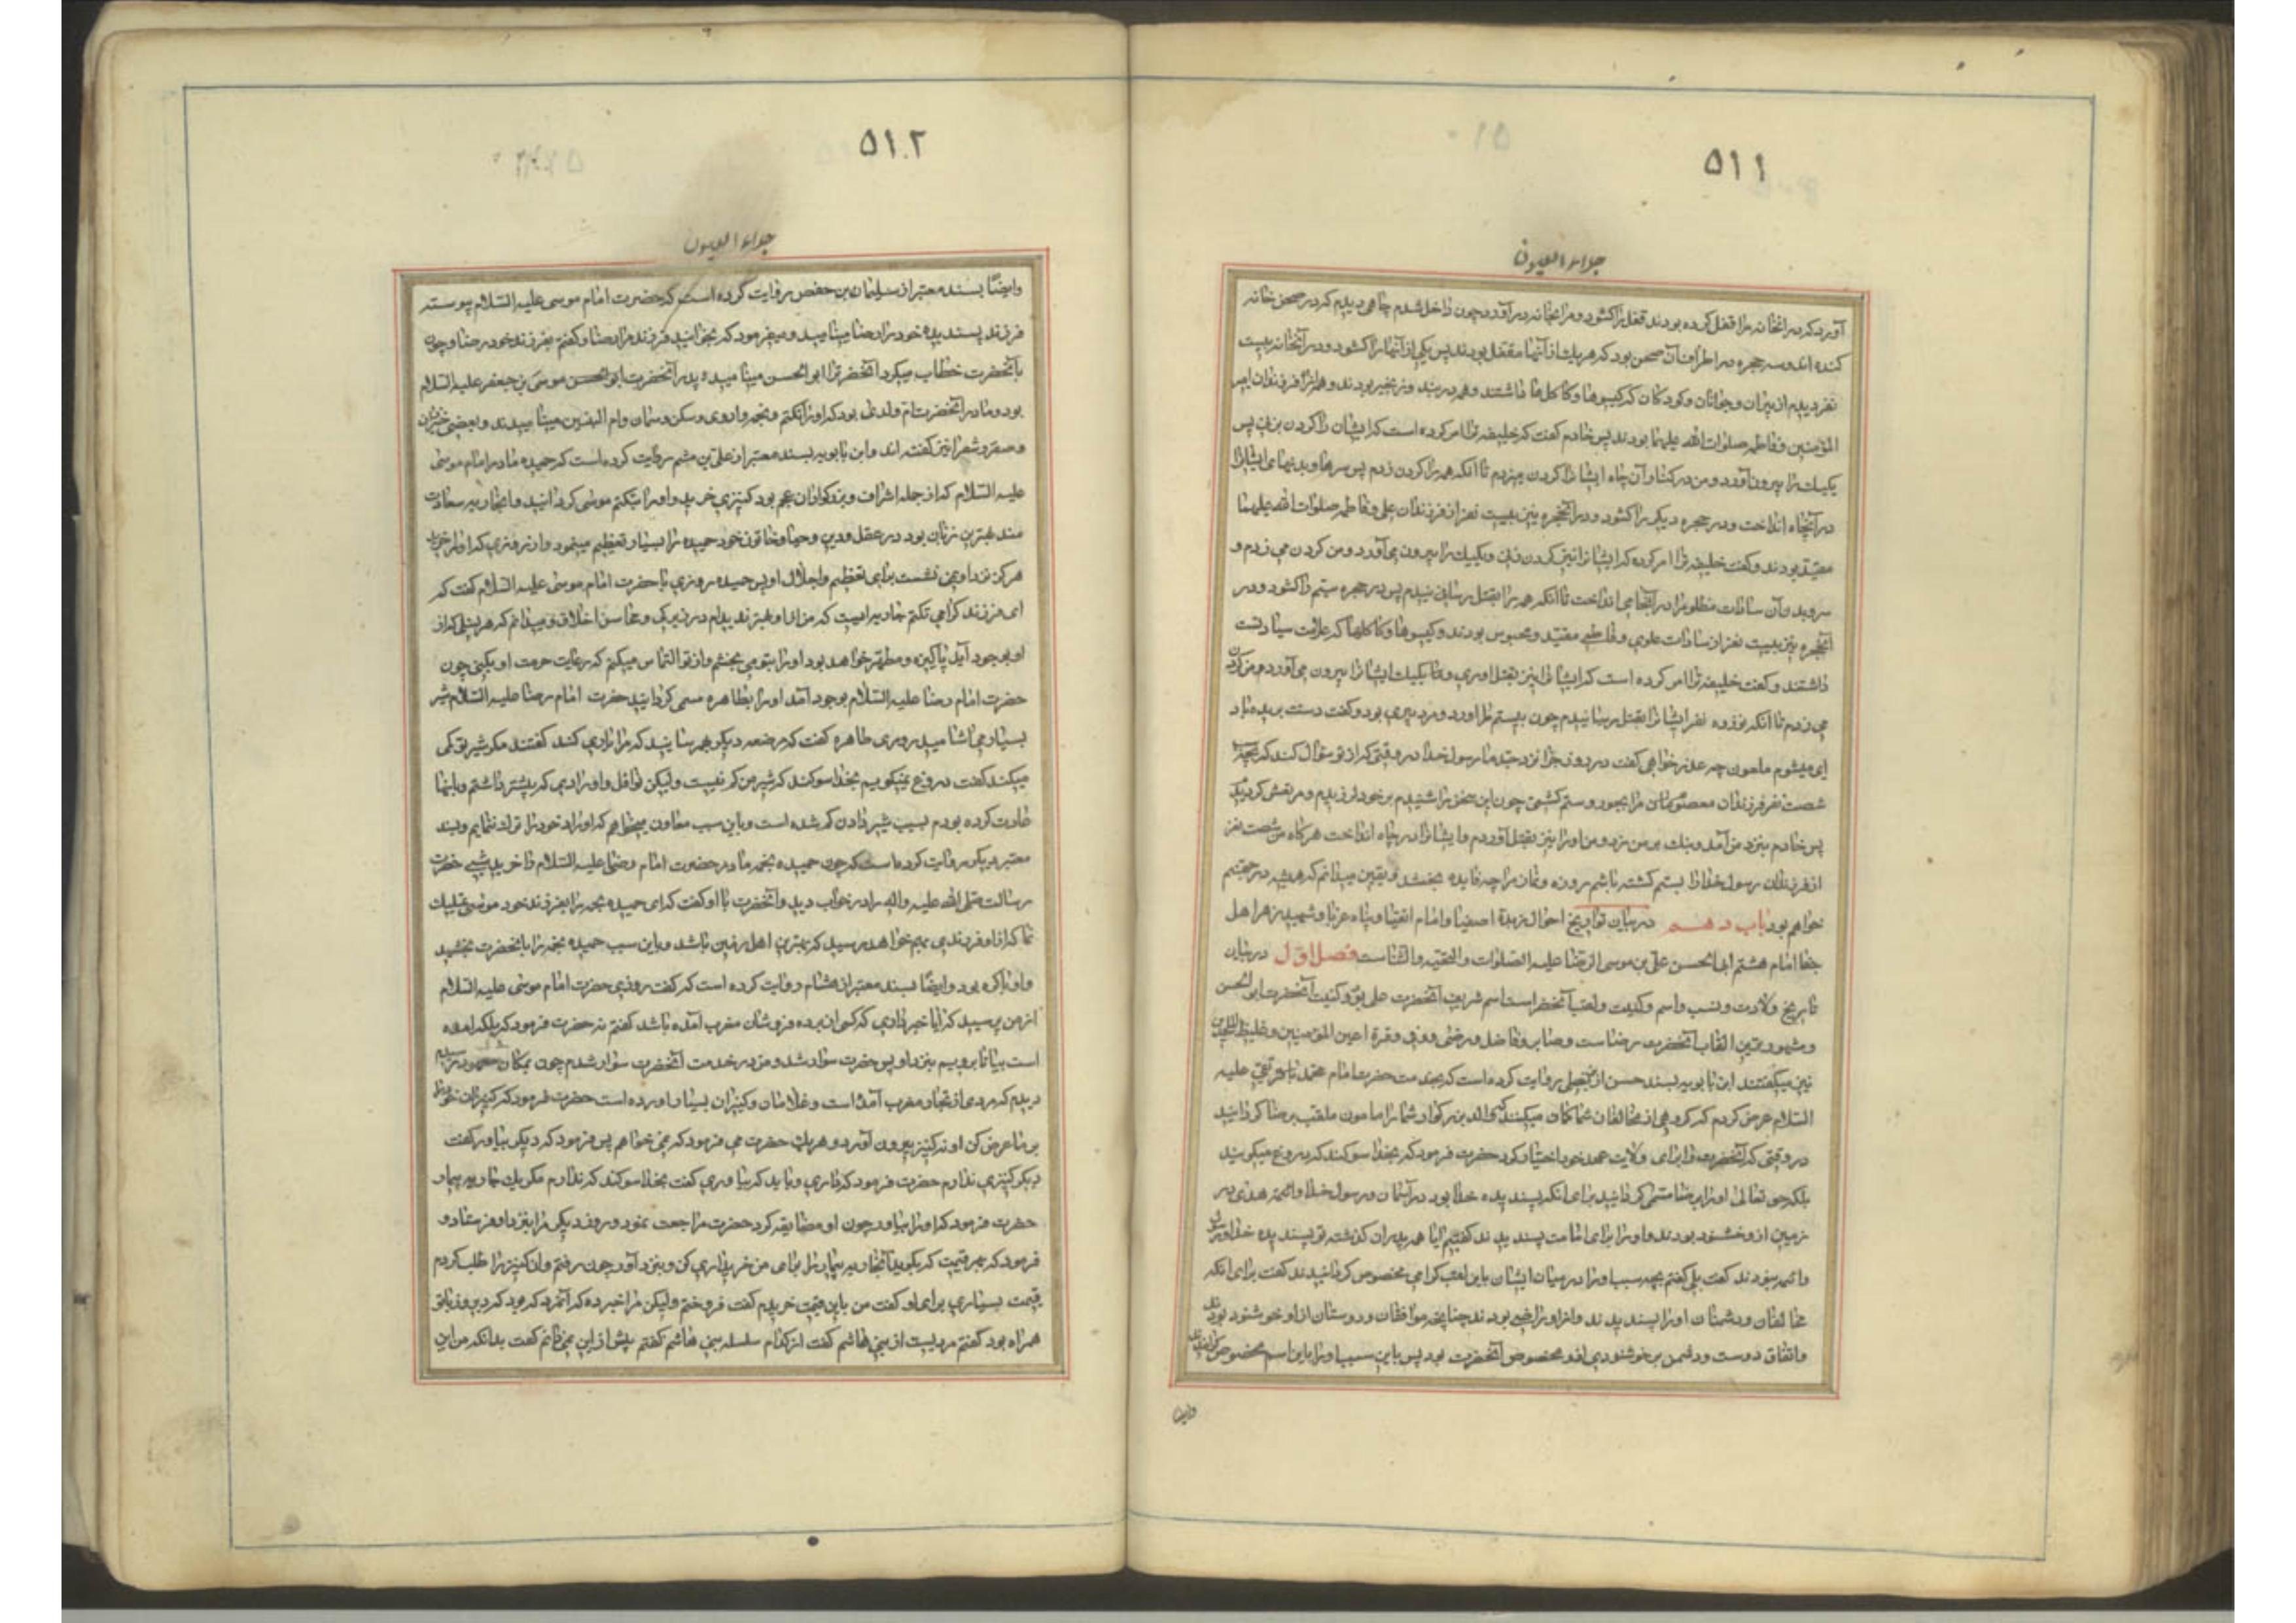 ۵۱۱
جلاء العیون
آورد که در انخانه را قفل کرده بودند قفل را کشود و مرا بخانه در آورد چون داخل شدم چاهی دیدم که در صحن خانه
کنده اند و سه حجره در اطراف آن صحن بود که هر یك از آنها مقفل بودند پس یکی از آنها را کشود و در آنخانه بیست
نفر دیدم از پیران و جوانان و کودکان که کیسوها و کاکل ها داشتند و همه در بند و زنجیر بودند و همه از فرزندان امیر
المؤمنین و فاطمه صلوات الله علیهما بودند پس خادم کفت که خلیفه ترا امر کرده است که ایشان را کردن بزنی پس
یکیك را بیرون آورد و من در کنار آن چاه ایشا نرا کردن میزدم تا آنکه همه را کردن زدم پس سرها و بدنهای ایشانرا
در آنچاه انداخت و در حجره دیکر را کشود و در آنحجره نیز بیست نفر از فرزندان علی و فاطمه صلوات الله علیهما
مقید بودند و کفت خلیفه ترا امر کرده که ایشا نرا نیز کردن زنی و یکیك را بیرون می آورد و من کردن می زدم و
سر و بدن آن سادات مظلوم را در آنچا می انداخت تا آنکه همه را بقتل رسانیدم پس در حجره سیم را کشود و در
آنحجره نیز بیست نفر از سادات علوی و فاطمی مقید و محبوس بودند و کیسوها و کاکلها که علامت سیادتست
داشتند و کفت خلیفه ترا امر کرده است که ایشا نرا نیز بقتل اوری و یکیك ایشا نرا بیرون می آورد و من کردن
می زدم تا آنکه نوزده نفر ایشا نرا بقتل رسانیدم چون بیستم را اورد و مرد پیری بود و کفت دست بریده باد
ای میشوم ملعون چه عذر خواهی کفت در روز جزا نزد جد ما رسول خدا در وقتی که از تو سؤال کند که بچه
شصت نفر فرزندان معصوم مرا بجور و ستم کشتی چون این سخن را شنیدم بر خود لرزیدم و مرتعش کردیدم
پس خادم بنزد من آمد و بانك بر من زد و من اورا نیز بقتل آوردم و ایشا نرا در چاه انداخت هر کاه من شصت نفر
از فرزندان رسول خدا را بستم کشته باشم روزه و نماز مرا چه فایده بخشد و یقین میدانم که همیشه در جهنم
خواهم بود باب دهم در بیان تواریخ احوال زبدۀ اصفیا و امام اتقیا و پناه غربا و شهید زهر اهل
جفا امام هشتم ابی الحسن علی بن موسی الرضا علیه الصلوات والتحیه والثناست فصل اول در بیان
تاریخ ولادت و نسب و اسم و کنیت و لقب آنحضر است اسم شریف آنحضرت علی بود و کنیت آنحضرت ابو الحسن
و مشهورترین القاب آنحضرت رضا ست و صابر و فاضل و رضی و وفی و قرة اعین المؤمنین و غیظ الملحدین
نیز میکفتند ابن بابویه بسند حسن از بزنطی روایت کرده است که بخدمت حضرت امام محمد تقی علیه
السلام عرض کردم که کروهی از مخالفان شما کمان میکنند که والد بزرکوار شما را مامون ملقب برضا کردانید
در وقتی که آنحضرت را برای ولایت عهد خود اختیار کرد حضرت فرمود که بخدا سوکند که دروغ میکویند
بلکه حق تعالی اورا برضا مسمی کردانید برای آنکه پسندیده خدا بود در آسمان و رسول خدا و ائمه هدی در
زمین از و خشنود بودند و اورا برای امامت پسندیدند کفتم آیا همه پدران کذشته تو پسندیده خدا و رسول
و ائمه نبودند کفت بلی کفتم بچه سبب اورا در میان ایشان باین لقب کرامی مخصوص کردانیدند کفت برای آنکه
مخالفان و دشمنان اورا پسندیدند و از او راضی بودند چنانچه موافقان و دوستان از او خوشنود بودند
و اتفاق دوست و دشمن بر خوشنودی از و مخصوص آنحضرت بود پس باین سبب اورا باین اسم مخصوص کردانیدند
وایضا
۵۱۲
جلاء العیون
وایضًا بسند معتبر از سلیمان بن حفص روایت کرده است که حضرت امام موسی علیه السلام پیوسته
فرزند پسندیده خود را رضا مینامید و میفرمود که بخوانید فرزند مرا رضا و کفتم بفرزند خود رضا و چون
با آنحضرت خطاب میکرد آنحضر ترا ابو الحسن مینامید و پدر آنحضرت ابو الحسن موسی بن جعفر علیه السلام
بود و مادر آنحضرت ام ولدی بود که اورا تکتم و نجمه و اروی و سکن و سمان و ام البنین مینامیدند و بعضی خیزران
و صقر و شقرا نیز کفته اند و ابن بابویه بسند معتبر از علی بن میثم روایت کرده است که حمیده مادر امام موسی
علیه السلام که از جمله اشراف و بزرکواران عجم بود کنیزی خرید و اورا بتکتم موسی کردانید و انجاریه سعادت
مند بهترین زنان بود در عقل و دین و حیا و خاتون خود حمیده را بسیار تعظیم مینمود و از روزی که اورا خرید
هرکز نزد او نمی نشست برای تعظیم و اجلال او پس حمیده روزی با حضرت امام موسی علیه السلام کفت که
ای فرزند کرامی تکتم جاریه ایست که من از او بهتر ندیدم در زیرکی و محاسن اخلاق و میدانم که هر نسلی که از
او بوجود آید پاکیزه و مطهر خواهد بود اورا بتو می بخشم و از تو التماس میکنم که رعایت حرمت او بکنی چون
حضرت امام رضا علیه السلام بوجود آمد اورا بطاهره مسمی کردانید حضرت امام رضا علیه السلام شیر
بسیار می اشامید روزی طاهره کفت که مرضعه دیکر بهم رسانید که مرا یاری کند کفتند مکر شیر تو کمی
میکند کفت دروغ نمیکویم بخدا سوکند که شیر من کم نیست ولیکن نوافل و اورادی که پیشتر داشتم و بانها
عادت کرده بودم بسبب شیر دادن کم شده است و باین سبب معاون میخواهم که اوراد خود را ترك ننمایم و بسند
معتبر دیکر روایت کرده است که چون حمیده نجمه مادر حضرت امام رضا علیه السلام را خرید شبی حضرت
رسالت صلی الله علیه واله را در خواب دید و آنحضرت با او کفت که ای حمیده نجمه را بفرزند خود موسی تملیك
نما که از او فرزندی بهم خواهد رسید که بهترین اهل زمین باشد و باین سبب حمیده نجمه را بانحضرت بخشید
و او باکره بود وایضًا بسند معتبر از هشام روایت کرده است که کفت روزی حضرت امام موسی علیه السلام
از من پرسید که ایا خبر داری که کسی از برده فروشان مغرب آمده باشد کفتم نه حضرت فرمود که بلکه امده
است بیا تا برویم بنزد او پس حضرت سوار شد و من در خدمت آنحضرت سوار شدم چون بمکان معهود رسیدیم
دیدم که مردی از تجار مغرب آمده است و غلامان و کنیزان بسیار اورده است حضرت فرمود که کنیزان خود را
بر ما عرض کن او نه کنیز بیرون آورد و هریك حضرت می فرمود که نمی خواهم پس فرمود که دیکر بیاور کفت
دیکر کنیزی ندارم حضرت فرمود که داری و باید که بیاوری کفت بخدا سوکند که ندارم مکر یك جاریه بیمار
حضرت فرمود که اورا بیاور چون او مضایقه کرد حضرت مراجعت نمود و روز دیکر مرا بنزد او فرستاد و
فرمود که بهر قیمت که بکوید آنجاریه بیمار را برای من خریداری کن و بنزد آور چون رفتم و ان کنیز را طلب کردم
قیمت بسیاری برای او کفت من باین قیمت خریدم کفت فروختم ولیکن مرا خبر ده که آنمرد که بود که دیروز با تو
همراه بود کفتم مردیست از بنی هاشم کفت از کدام سلسله بنی هاشم کفتم بیش از این نمیدانم کفت بدانکه من این